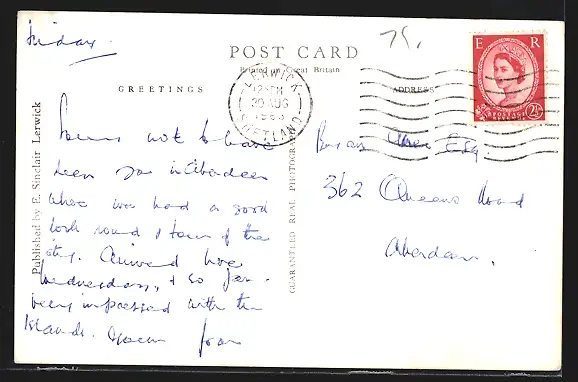 Friday.
POST CARD
75.
Printed in Great Britain
GREETINGS
ADDRESS
LERWICK
12 PM
30 AUG
SHETLAND
E R
POSTAGE
2½
Published by E. Sinclair Lerwick
GUARANTEED REAL PHOTOGRAPH
not to have
been in Aberdeen
had a good
look round & tour of the
city. Arrived here
Wednesday, & so far
very impressed with the
Islands.
Esq.
362 Queens Road
Aberdeen.